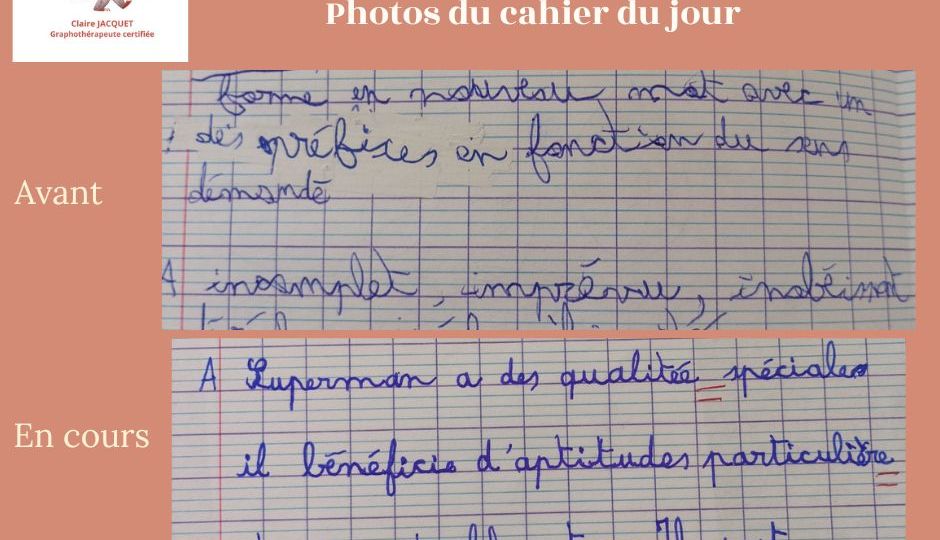 Claire JACQUET
Graphothérapeute certifiée
Photos du cahier du jour
Avant
forme en nouveau mot avec un
: des préfixes en fonction du sens
demandé
A incomplet, imprévu, inobéinat
En cours
A Superman a des qualitée spéciales
il bénéficie d'aptitudes particulière